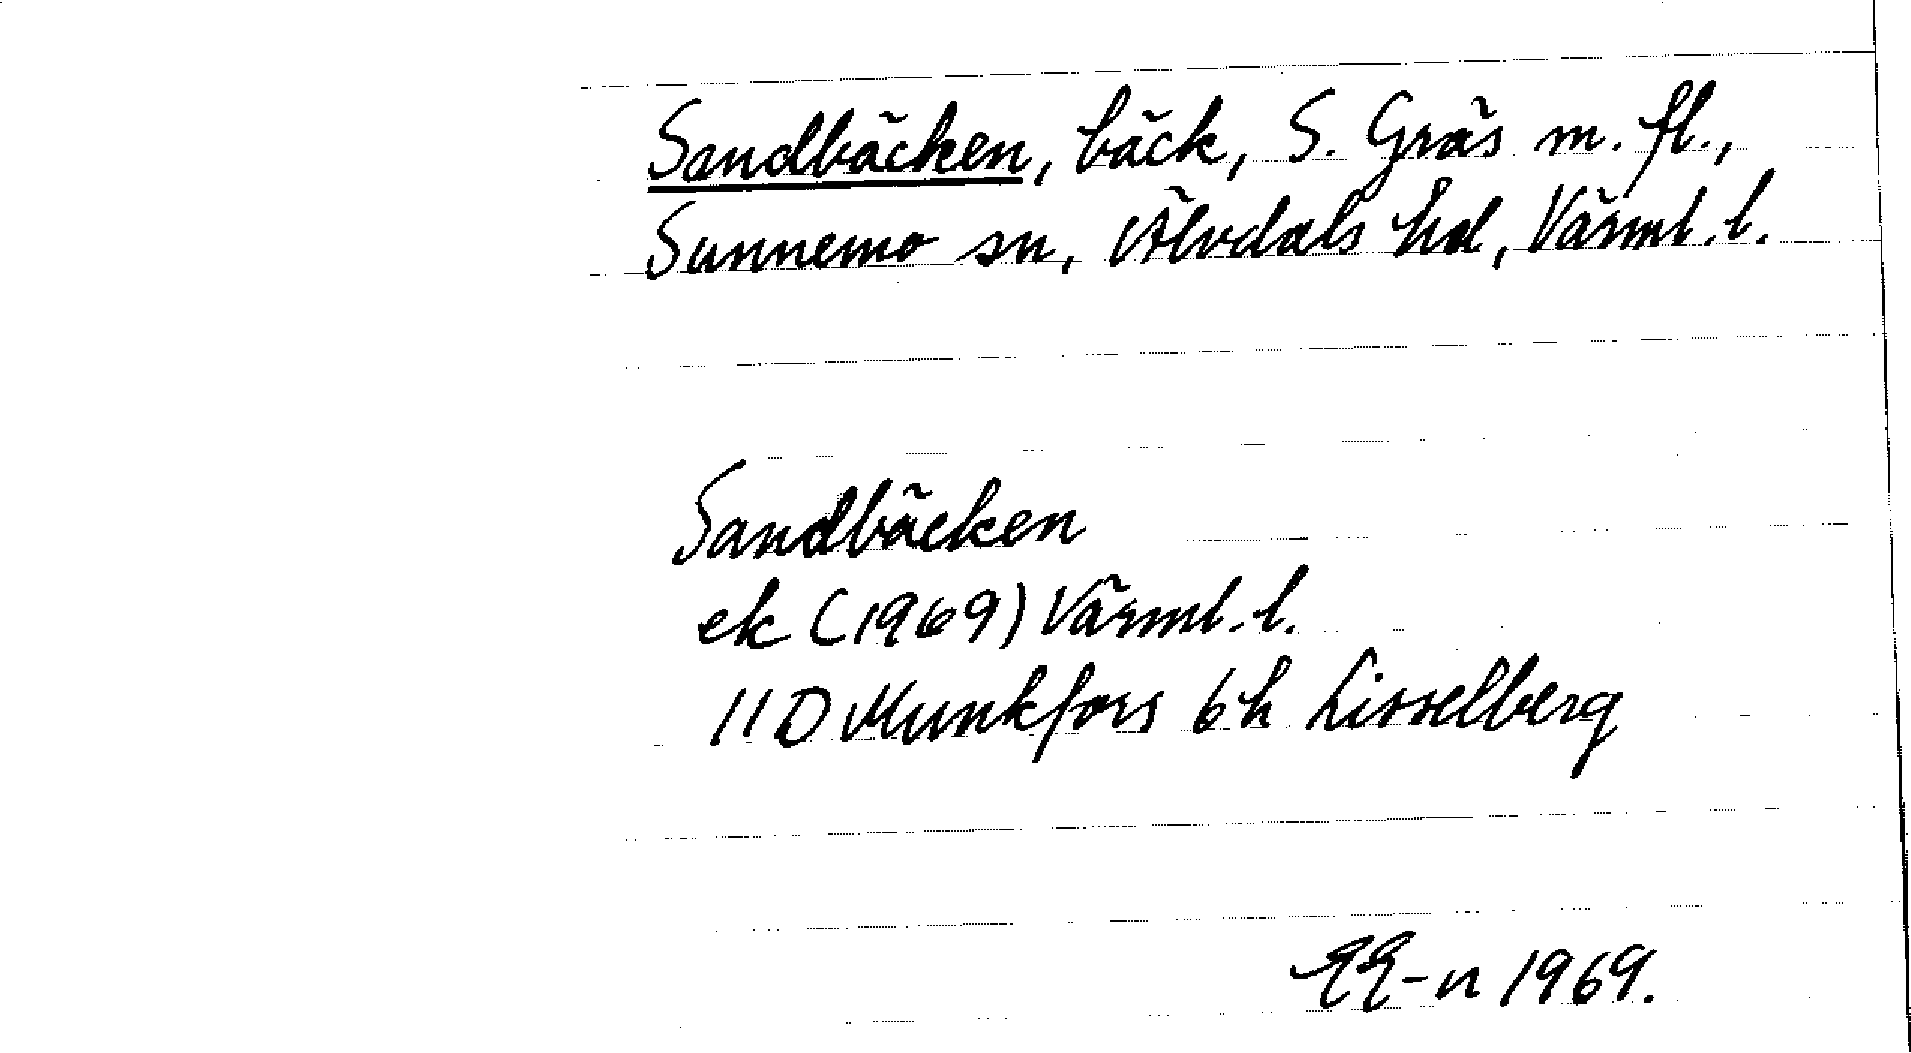 Sandbäcken, bäck, S. Gräs m. fl.,
Sunnemo sn, Älvdals hd, Värml. l.
Sandbäcken
ek (1969) Värml. l.
11D Munkfors 6h Lisselberg
1969.